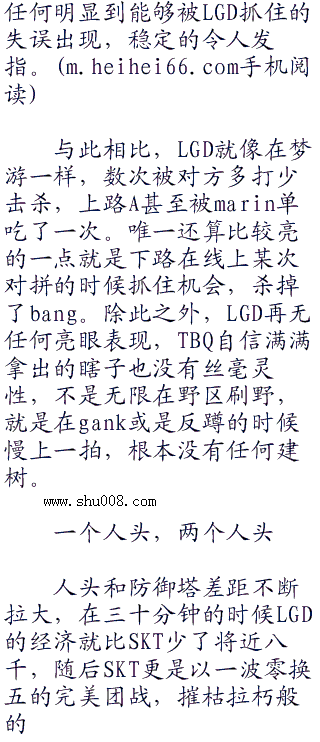 任何明显到能够被LGD抓住的
失误出现，稳定的令人发
指。(m.heihei66.com手机阅
读)
与此相比，LGD就像在梦
游一样，数次被对方多打少
击杀，上路A甚至被marin单
吃了一次。唯一还算比较亮
的一点就是下路在线上某次
对拼的时候抓住机会，杀掉
了bang。除此之外，LGD再无
任何亮眼表现，TBQ自信满满
拿出的瞎子也没有丝毫灵
性，不是无限在野区刷野，
就是在gank或是反蹲的时候
慢上一拍，根本没有任何建
树。
www.shu008.com
一个人头，两个人头
人头和防御塔差距不断
拉大，在三十分钟的时候LGD
的经济就比SKT少了将近八
千，随后SKT更是以一波零换
五的完美团战，摧枯拉朽般
的